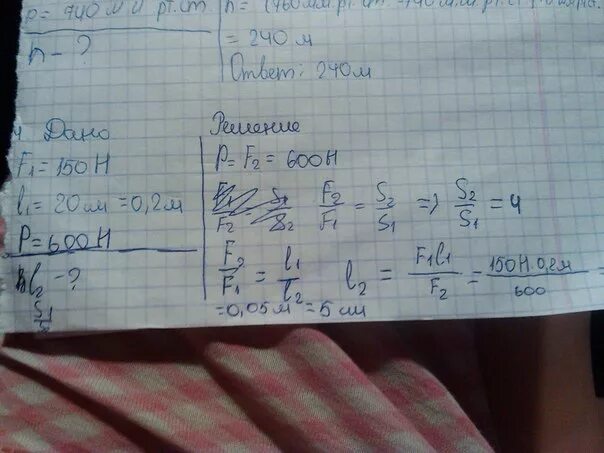 p = 740 мм рт.ст.
h - ?
h = (760мм.рт.ст. - 740м.м.рт.ст)
= 240 м
Ответ: 240м
4 Дано
F₁ = 150 Н
l₁ = 20 см = 0,2 м
P = 600 Н
l₂ - ?
Решение
P = F₂ = 600 Н
F₂/F₁ = S₂/S₁ => S₂/S₁ = 4
F₂/F₁ = l₁/l₂ l₂ = F₁l₁/F₂ = 150Н·0,2м/600 =
= 0,05 м = 5 см